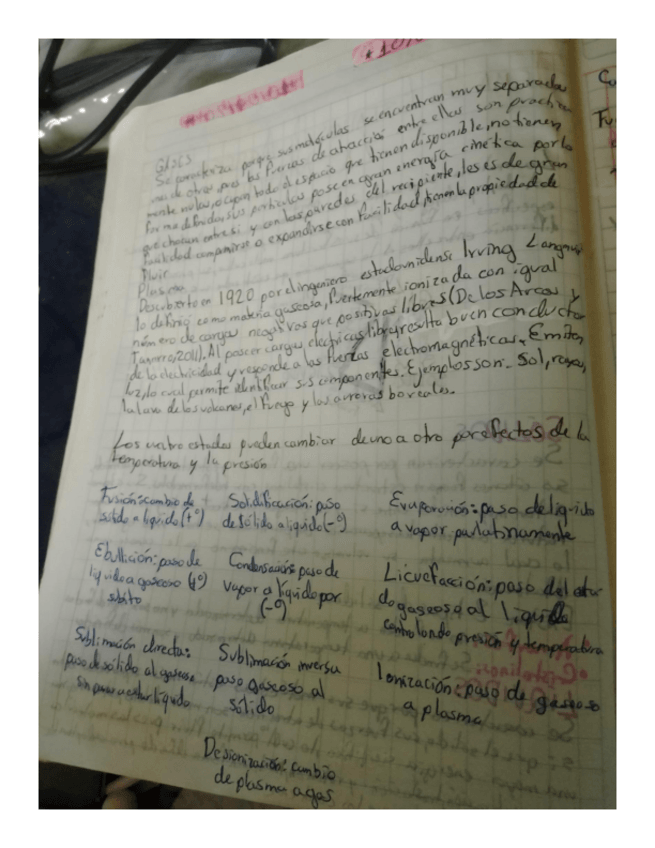 Gases
Se caracteriza porque sus moléculas se encuentran muy separadas
unas de otras, pues las fuerzas de atracción entre ellas son practica
mente nulas, ocupan todo el espacio que tienen disponible, no tienen
forma definida, sus partículas poseen gran energía cinética por lo
que chocan entre si y con las paredes del recipiente, les es de gran
facilidad comprimirse o expandirse con facilidad, tienen la propiedad de
fluir.
Plasma
Descubierto en 1920 por el ingeniero estadounidense Irving Langmuir
lo definió como materia gaseosa, fuertemente ionizada con igual
número de cargas negativas que positivas libres (De los Arcos y
2011). Al poseer cargas eléctricas libres resulta buen conductor
de la electricidad y responde a las fuerzas electromagnéticas. Emiten
luz, lo cual permite identificar sus componentes. Ejemplos son. Sol, rayos,
la lava de los volcanes, el fuego y las auroras boreales.
Los cuatro estados pueden cambiar de uno a otro por efectos de la
temperatura y la presión
Fusión: cambio de
sólido a líquido (+°)
Solidificación: paso
de sólido a líquido (-°)
Evaporación: paso de líquido
a vapor paulatinamente
Ebullición: paso de
líquido a gaseoso (+°)
súbito
Condensación: paso de
vapor a líquido por
(-°)
Licuefacción: paso del esta
do gaseoso al líquido
controlando presión y temperatura
Sublimación directa:
paso de sólido al gaseoso
sin pasar a estar líquido
Sublimación inversa
paso gaseoso al
sólido
Ionización: paso de gaseoso
a plasma
Desionización: cambio
de plasma a gas